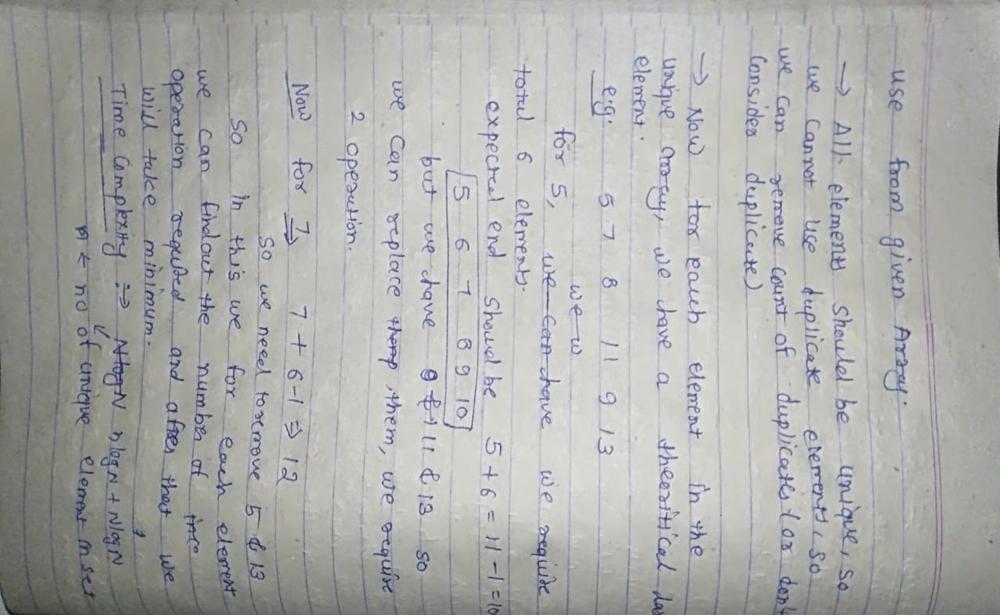 use from given Array.
→ All elements should be unique, so
we cannot use duplicate elements, so
we can remove count of duplicates (or don't
consider duplicate)
→ Now for each element in the
unique array, we have a theoritical las
element.
eg: 5 7 8 11 9 13
we w
for 5, we can have we require
total 6 elements.
expected end should be 5 + 6 = 11 - 1 = 10
5 6 7 8 9 10
but we have 11 & 13 so
we can replace them, we require
2 operation.
Now for 7 ⇒ 7 + 6 - 1 ⇒ 12
So we need to remove 5 & 13
So in this we for each element
we can findout the number of
operation required and after that we
will take minimum.
Time Complexity ⇒ NlogN nlogn + NlogN
n ← no of unique element in set